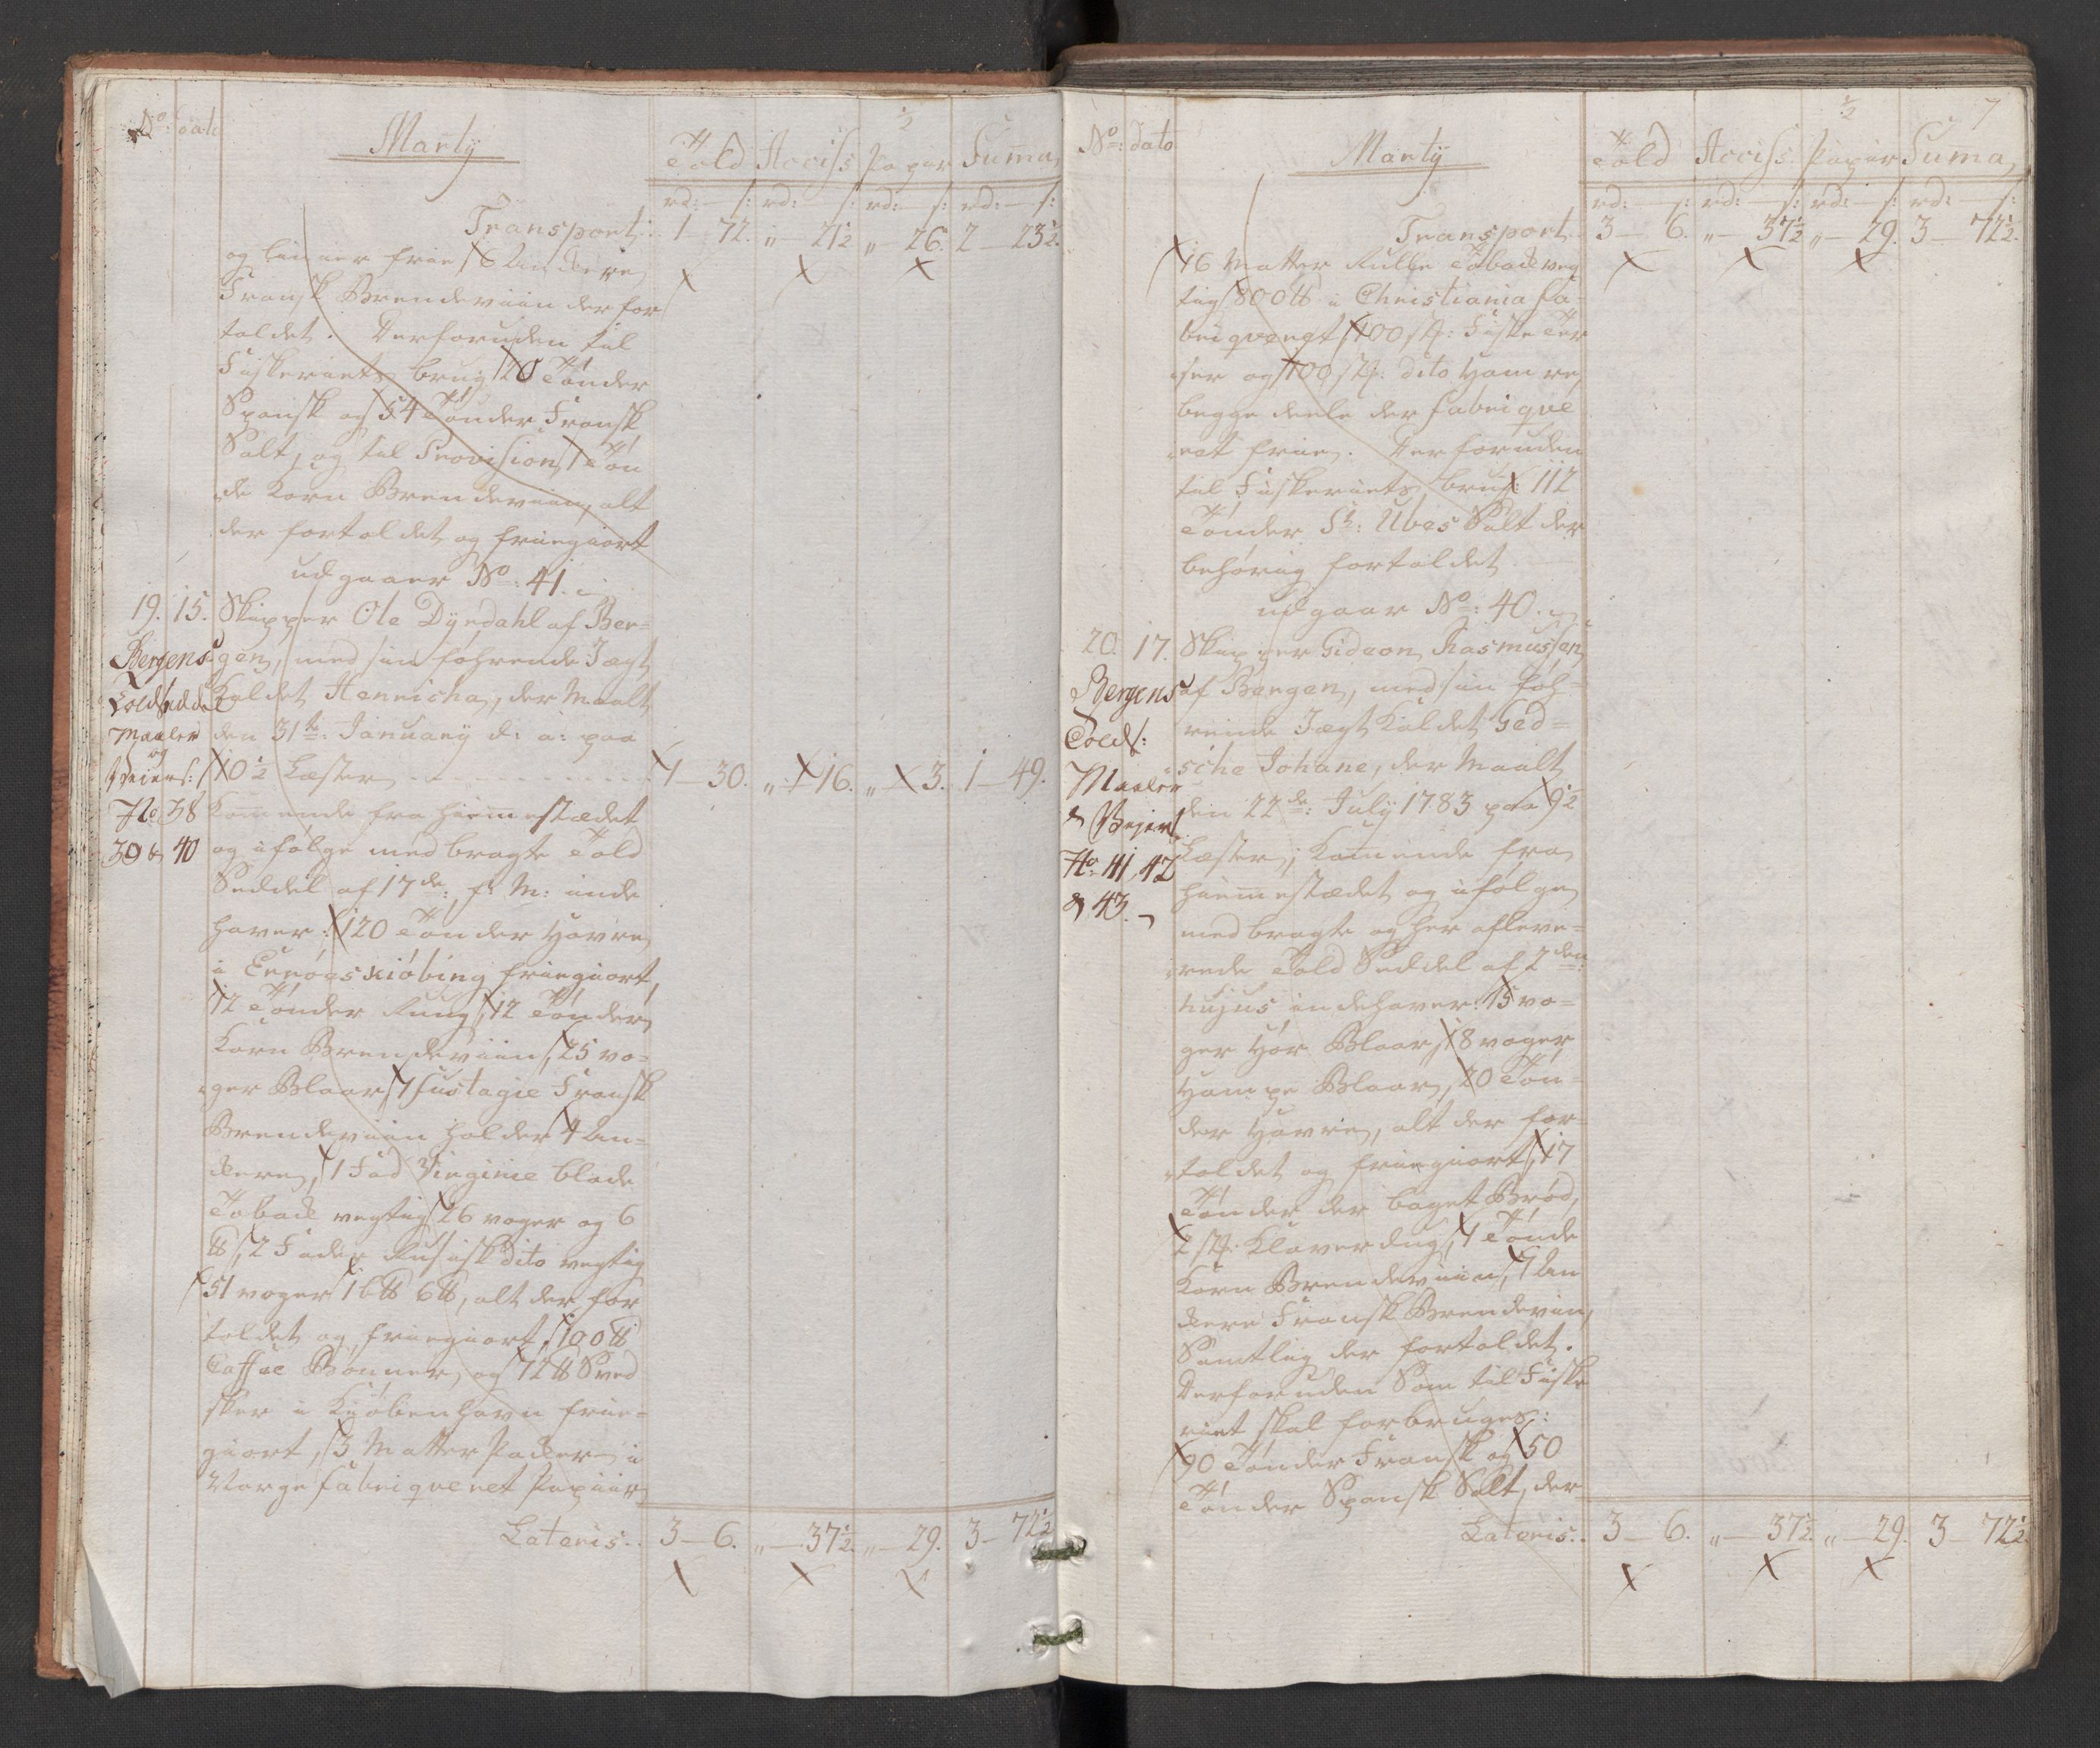 No: dato
Martÿ
Told Acciss Papir Suma
rd: s: rd: s: rd: s: rd: s:
Transport: 1 72. „ 21½ „ 26. 2 23½.
og Liuner frie, 6 Anckere
Fransk Brendeviin der for
toldet. Derforuden til
Fiskeriets brug 20 Tønder
Spansk og 54 Tønder Fransk
Salt, og til Provision 1 Tøn
de Korn Brendeviin, alt
der fortoldet og friegiort
udgaaer No: 41.
19. 15. Skipper Ole Dÿrdahl af Ber=
gen, med sin føhrende Jægt
Kaldet Henricha, der Maalt
den 31te: Januarÿ d: a: paa
10½ Læster 1 30. „ 16. „ 3. 1 49.
Bergens
Toldseddel
Maaler
og
Veiers:
No 38
39 & 40
Kommende fra hiemstædet
og ifølge medbragte Told
Seddel af 17de: f: M: inde
haver: 120 Tønder Havre
i Erröeskiöbing friegiort,
12 Tønder Rung, 12 Tønder
Korn Brendeviin, 25 vo=
ger Blaar, 1 fustagie Fransk
Brendeviin holder 4 An=
ckere, 1 Fad Virginie blade
Toback vegtig 26 voger og 6
℔, 2 Fade Rusisk dito vegtig
51 voger 1 b℔ 6℔, alt der for
toldet og friegiort, 100℔
Caffee Bønner, og 72℔ Sved
sker i Kiøbenhavn frie=
giort, 3 Matter Packer i
Norge fabriqveret Papiir
Lateris. 3 6. „ 37½. „ 29. 3 72½
No: dato
Martÿ
7
Told Acciss Papir Suma
rd: s: rd: s: rd: s: rd: s:
Transport. 3 6. „ 37½ „ 29. 3 72½.
16 Matter Rulle Toback veg
tig 800℔ i Christiania fa=
briqveret, 100 st: Fiske Tør
ser og 100 st: dito Hamre,
begge deele der fabriqve
ret frie. Derforuden
til Fiskeriets brug: 112
Tønder St: Ubes Salt der
behørig fortoldet
udgaar No: 40.
20. 17. Skipper Gideon Rasmussen
af Bergen, med sin føh=
rende Jægt Kaldet Gid=
sche Johane, der Maalt
den 22de: Julÿ 1783 paa 9½
Læster; Kommende fra
hiemstædet og ifølge
medbragte og her afleve=
rede Told Seddel af 2den:
hujus indehaver: 15 vo=
ger Hør Blaar, 18 voger
Hampe Blaar, 20 Tøn=
der Havre, alt der for=
toldet og friegiort, 17
Tønder der baget Brød,
2 st: Klaverdug, 1 Tønde
Korn Brendeviin, 1 An
ckere Fransk Brendeviin,
Samtlig der fortoldet.
Derforuden Som til Fiske
riet skal forbruges:
90 Tønder Fransk og 50
Tønder Spansk Salt, der
Bergens
Told s:
Maaler
& Vejers
No 41, 42
& 43.
Lateris. 3 6. „ 37½. „ 29. 3 72½